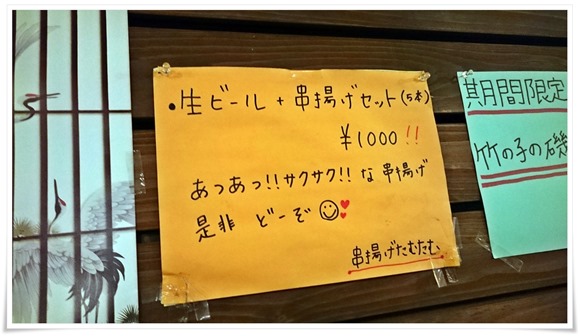 •生ビール + 串揚げセット(5本)
¥1000!!
あつあっ!!サクサク!!な串揚げ
是非 どーぞ
串揚げたむたむ
期間限定
竹の子の磯